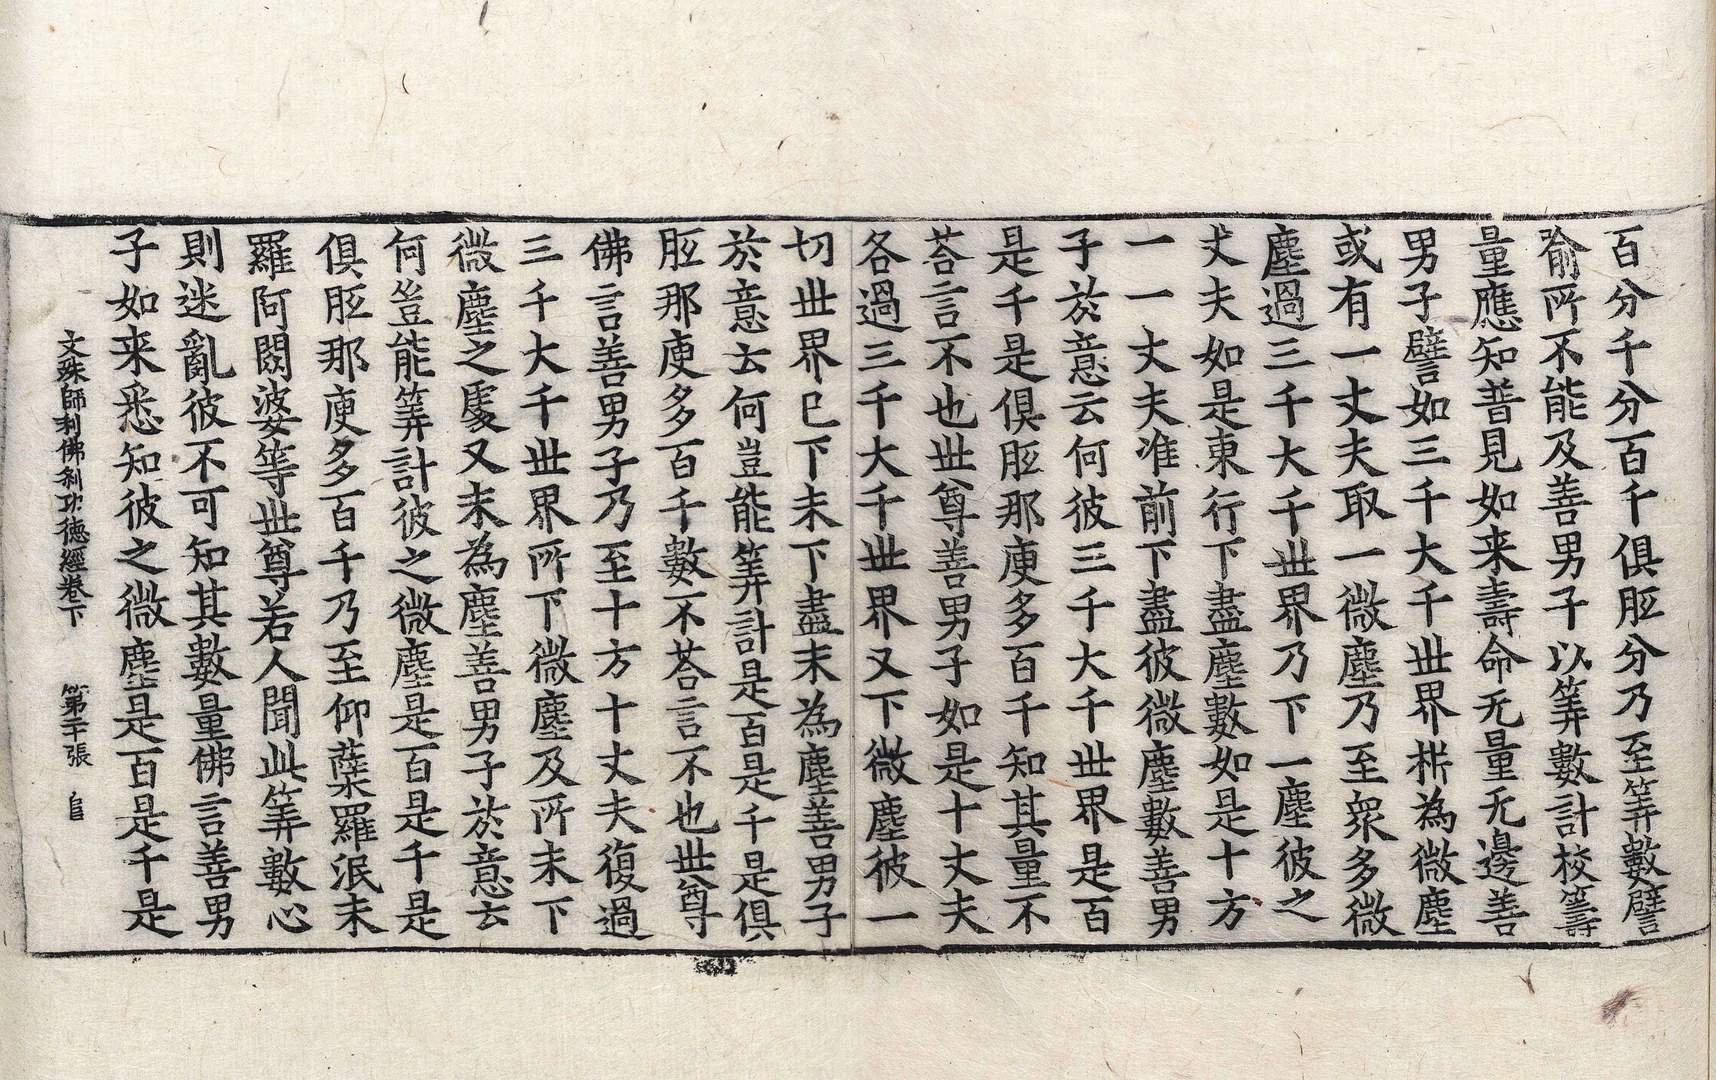 百分千分百千俱胝分乃至筭數譬
喻所不能及善男子以筭數計校籌
量應知普見如来壽命无量无邊善
男子譬如三千大千世界枡為微塵
或有一丈夫取一微塵乃至衆多微
塵過三千大千世界乃下一塵彼之
丈夫如是東行下盡塵數如是十方
一一丈夫准前下盡彼微塵數善男
子於意云何彼三千大千世界是百
是千是俱胝那庾多百千知其量不
荅言不也世尊善男子如是十丈夫
各過三千大千世界又下微塵彼一
切世界已下未下盡末為塵善男子
於意云何豈能筭計是百是千是俱
胝那庾多百千數不荅言不也世尊
佛言善男子乃至十方十丈夫復過
三千大千世界所下微塵及所未下
微塵之處又末為塵善男子於意云
何豈能筭計彼之微塵是百是千是
俱胝那庾多百千乃至仰蘖羅泯末
羅阿閦婆等世尊若人聞此筭數心
則迷亂彼不可知其數量佛言善男
子如来悉知彼之微塵是百是千是
文殊師利佛刹功德經卷下 第二十張 自